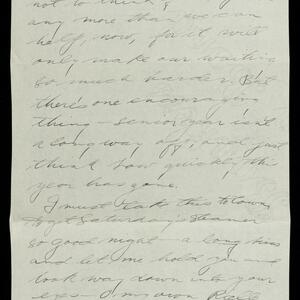 not to think,
any more than we can
help, now, for it will
only make our waiting
so much harder. But
there's one encouraging
thing – senior year isn't
a long way off, and just
think how quickly this
year has gone.
I must take this to town
to get Saturday's steamer
so good night – a long kiss
and let me hold you and
look way down into your
eyes – O, my own